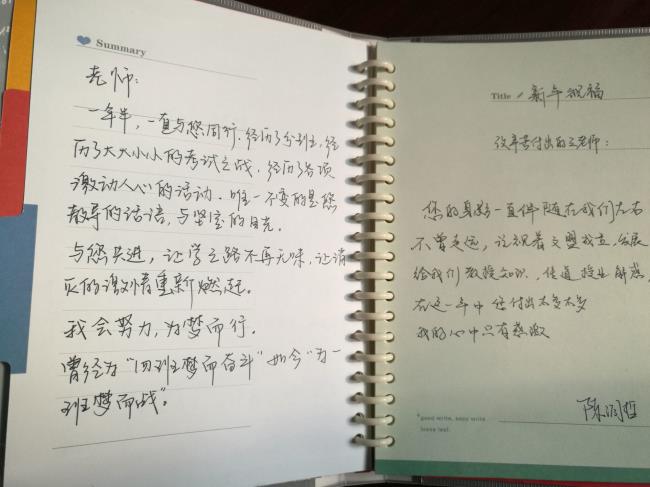 Summary
老师：
一年半，一直与您同行，经历了分别，经
历了大大小小的考试之战，经历了各项
激动人心的活动，唯一不变的是您
教导的话语，与坚定的目光。
与您共进，让学之路不再无味，让消
灭的激情重新燃起。
我会努力，为梦而行。
曾经为“四班梦而奋斗”如今“为一
班梦而战”。
Title 新年祝福
致辛苦付出的老师：
您的身影一直伴随在我们左右
不曾走远，
给我们教授知识，传道授业解惑
在这一年中您付出太多太多
我的心中只有感激
good write, easy write
loose leaf.